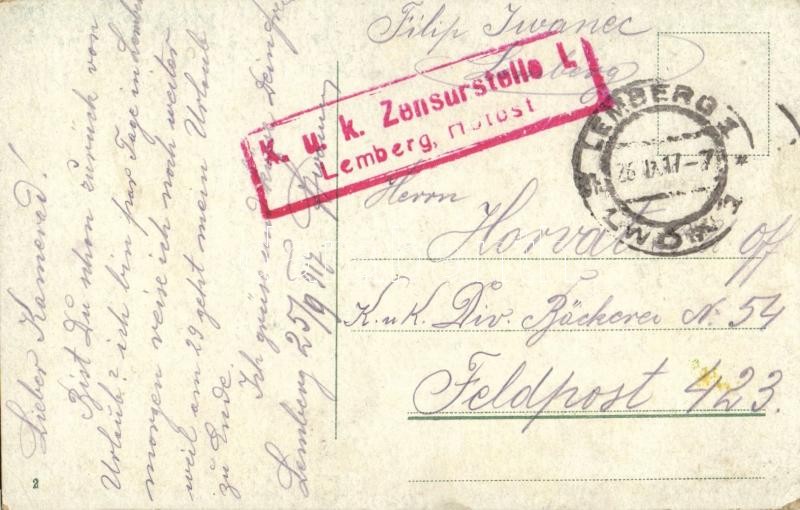 Lieber Kamerad!
Bist Du schon zurück von
Urlaub? ich bin par Tage in Lemberg
morgen reise ich noch weiter
weil am 29 geht mein Urlaub
zu Ende.
Ich grüse und Dein
Lemberg 25/9 917 Iwanec
Filip Iwanec
Lemberg
K. u. k. Zensurstelle L
Lemberg,
LEMBERG 1
26.IX.17-7
LWÓW 1
Herrn
Horvat off
K. u. K. Div. Bäckerei Nr. 54
Feldpost 423.
2